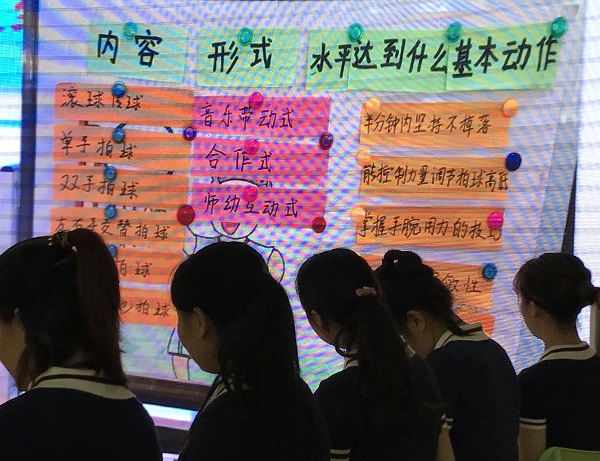 内容
形式
水平达到什么基本动作
滚球传球
单手拍球
双手拍球
左右手交替拍球
拍球
拍球
音乐带动式
合作式
师幼互动式
半分钟内坚持不掉落
能控制力量调节拍球高低
掌握手腕用力的技巧
敏性